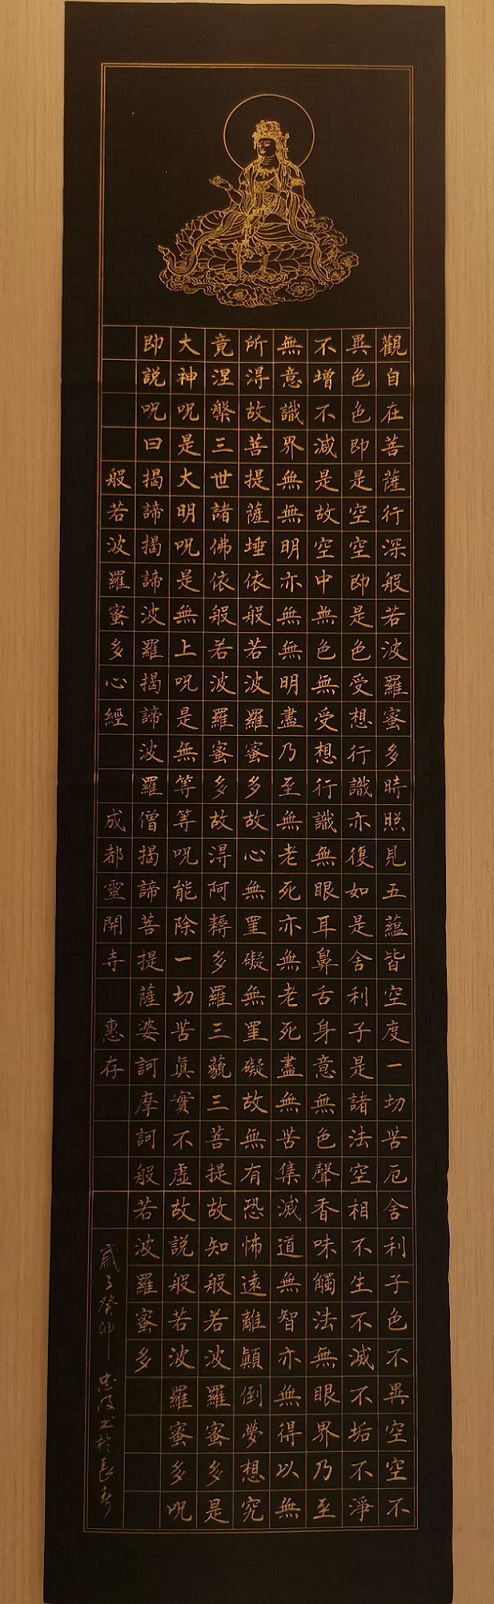 觀自在菩薩行深般若波羅蜜多時照見五蘊皆空度一切苦厄舍利子色不異空空不
異色色即是空空即是色受想行識亦復如是舍利子是諸法空相不生不滅不垢不淨
不增不減是故空中無色無受想行識無眼耳鼻舌身意無色聲香味觸法無眼界乃至
無意識界無無明亦無無明盡乃至無老死亦無老死盡無苦集滅道無智亦無得以無
所得故菩提薩埵依般若波羅蜜多故心無罣礙無罣礙故無有恐怖遠離顛倒夢想究
竟涅槃三世諸佛依般若波羅蜜多故得阿耨多羅三藐三菩提故知般若波羅蜜多是
大神呪是大明呪是無上呪是無等等呪能除一切苦眞實不虛故説般若波羅蜜多呪
即説呪曰揭諦揭諦波羅揭諦波羅僧揭諦菩提薩婆訶摩訶般若波羅蜜多
般若波羅蜜多心經 成都靈開寺 惠存
歲次癸卯 忠书於長春